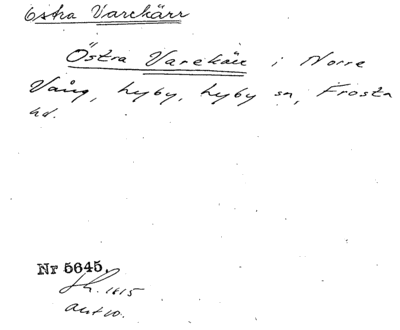 Östra Varekärr
Östra Varekärr i Norre
Vång, Lyby, Lyby sn, Frosta
hd.
Nr 5645.
Sk. 1815
akt 10.